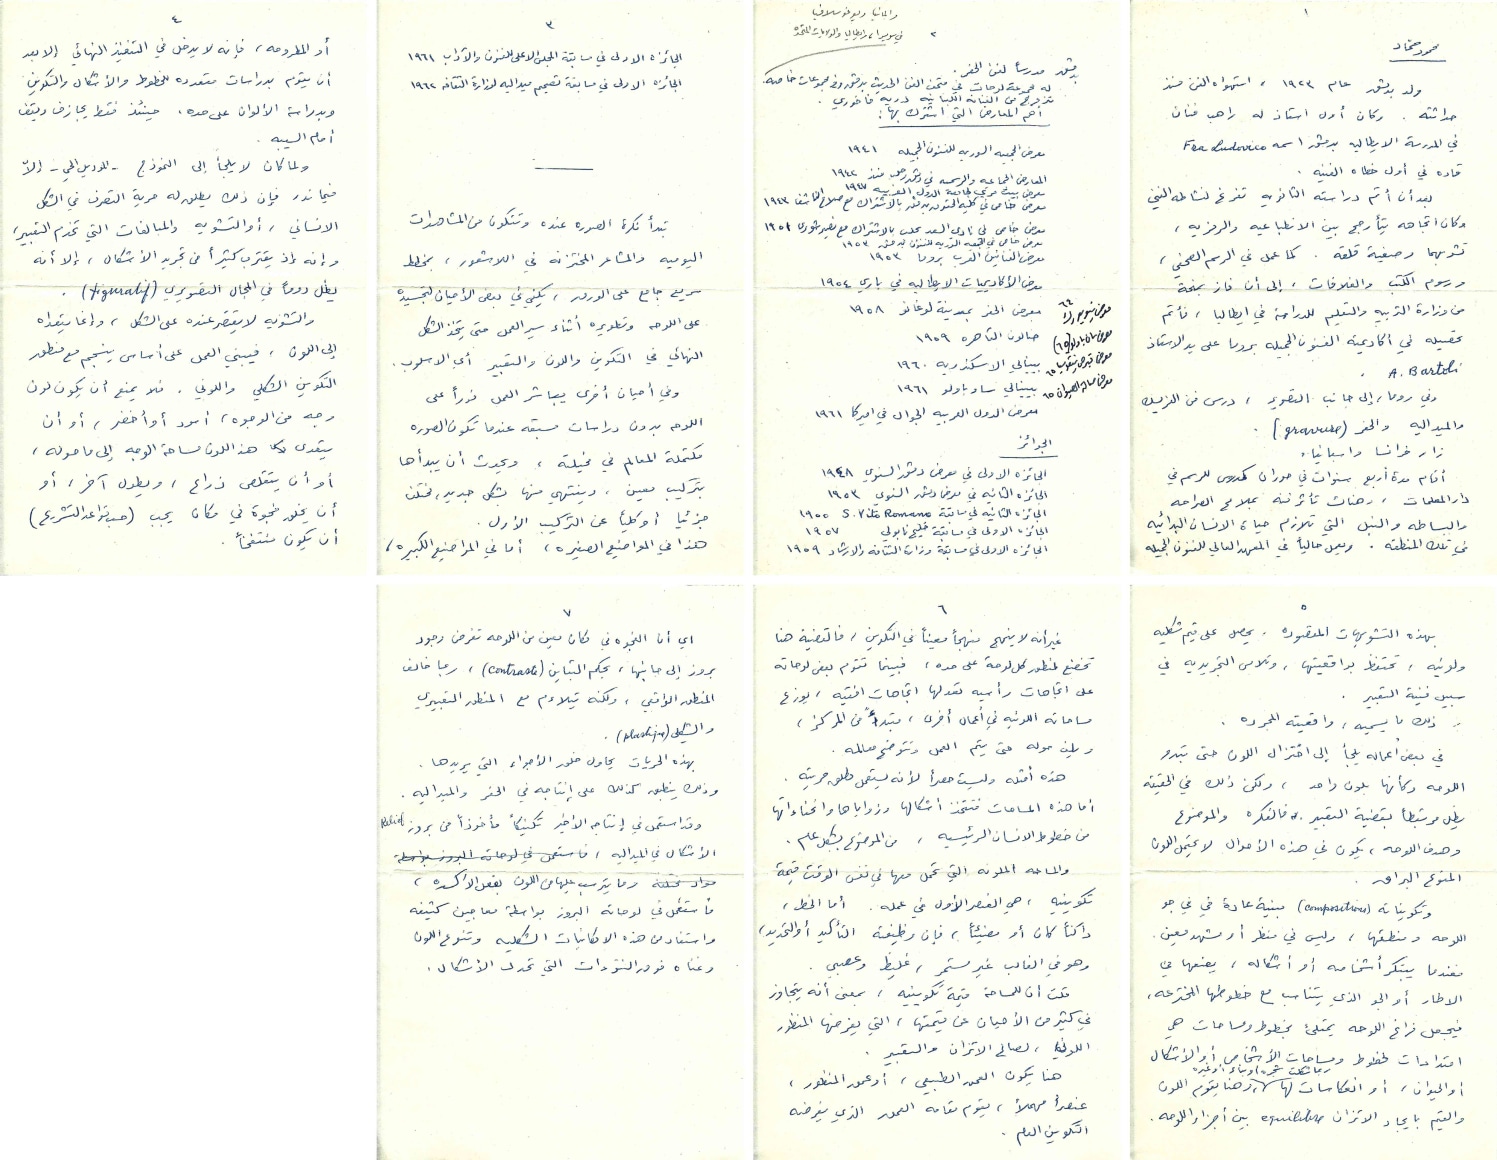 ١
محمود حماد
ولد بدمشق عام ١٩٢٣ ، استهواه الفن منذ
حداثته . وكان أول استاذ له راهب فنان
في المدرسة الايطاليه بدمشق اسمه Fra Ludovico
قاده في أول خطاه الفنيه .
بعد أن أتم دراسته الثانويه تفرغ لنشاطه الفني
وكان اتجاهه يتأرجح بين الانطباعيه والرمزيه ،
تشوبهما رمزية قلقة . كما عمل في الرسم الصحفي ،
ورسوم الكتب والغلافات ، إلى أن فاز بمنحة
من وزارة التربيه والتعليم للدراسة في ايطاليا ، فأتم
تحصيله في أكاديمية الفنون الجميله بروما على يد الاستاذ
A. Bartoli .
وفي روما ، إلى جانب التصوير ، درس فن الفريسك
والميداليه والحفر (gravure) .
زار فرانسا واسبانيا .
أقام مدة أربع سنوات في حوران كمدرس للرسم في
دار المعلمات ، وهناك تأثر فنه بملامح الصراحه
والبساطه والنبل التي تلازم حياة الانسان البدائيه
في تلك المنطقه . ويعمل حالياً في المعهد العالي للفنون الجميله
٢
والمانيا ويوغوسلافيا
في سوريا ، وايطاليا والولايات المتحده
بدمشق مدرساً لفن الحفر .
له مجموعة لوحات في متحف الفن الحديث بدمشق وفي مجموعات خاصه
تزوج من الفنانه اللبنانيه دريه فاخوري .
أهم المعارض التي اشترك بها :
معرض الجمعيه السوريه للفنون الجميله ١٩٤١
المعارض الجماعيه والرسميه في دمشق وحلب منذ ١٩٤٤
معرض بيت مري لجامعة الدول العربيه ١٩٤٧
معرض خاص في كلية الحقوق بدمشق بالاشتراك مع صلاح الناشف ١٩٤٣
معرض خاص في نادي السعد بحلب بالاشتراك مع نصير شورى ١٩٥١
معرض خاص في الجمعيه السوريه للفنون بدمشق ١٩٥٣
معرض الفنانين العرب بروما ١٩٥٣
معرض الأكاديميات الايطاليه في باري ١٩٥٤
معرض الحفر بمدينة لوغانو ١٩٥٨
صالون القاهره ١٩٥٩
بيينالي الاسكندريه ١٩٦٠
بيينالي ساوباولو ١٩٦١
معرض الدول العربيه الجوال في اميركا ١٩٦١
الجوائز
الجائزه الاولى في معرض دمشق السنوي ١٩٤٨
الجائزه الثانيه في معرض دمشق السنوي ١٩٥٣
الجائزه الثانيه في مسابقة S. Vito Romano ١٩٥٥
الجائزه الاولى في مسابقة خليج نابولي ١٩٥٧
الجائزه الاولى في مسابقة وزارة الثقافه والارشاد ١٩٥٩
٣
الجائزه الاولى في مسابقة المجلس الاعلى للفنون والآداب ١٩٦١
الجائزه الاولى في مسابقة تصميم ميداليه لوزارة الثقافه ١٩٦٢
تبدأ فكرة الصوره عنده وتتكون من المشاهدات
اليوميه والمشاعر المختزنه في اللاشعور ، بمخطط
سريع جامع على الورق ، يكفي في بعض الأحيان لتجسيده
على اللوحه وتطويره أثناء سير العمل حتى يتخذ الشكل
النهائي في التكوين واللون والتعبير أي الاسلوب .
وفي أحيان أخرى يباشر العمل فوراً على
اللوحه بدون دراسات مسبقه عندما تكون الصوره
مكتملة المعالم في مخيلته ، ويحدث أن يبدأها
بتركيب معين ، وينتهي منها بشكل جديد ، يختلف
جزئيا أو كلياً عن التركيب الأول .
هذا في المواضيع الصغيره ، أما في المواضيع الكبيره ،
٤
أو المطروحه ، فإنه لا يدخل في التنفيذ النهائي إلا بعد
أن يقوم بدراسات متعدده للخطوط والأشكال والتكوين
وبدراسة الألوان على حده ، حينئذ فقط يجازف ويقف
أمام السيبه .
ولما كان لا يلجأ إلى النموذج - الموديل الحي - إلاّ
فيما ندر فإن ذلك يطلق له حرية التصرف في الشكل
الانساني ، أو التشويه والمبالغات التي تخدم التعبير ،
وإنه إذ يقترب كثيراً من تجريد الأشكال ، إلا أنه
يظل دوماً في المجال التصويري (figuratif) .
والتشويه لا يقتصر عنده على الشكل ، وإنما يتعداه
إلى اللون ، فيبني العمل على أساس ينسجم مع منظور
التكوين الشكلي واللوني . فلا يمنع أن يكون لون
وجه من الوجوه ، أسود أو أخضر ، أو أن
يتعدى هذا اللون مساحة الوجه إلى ما حوله ،
أو أن يتقلص ذراع ، ويطول آخر ، أو
أن يغور فجوة في مكان يجب (حسب قواعد التشريح)
أن يكون منتفخاً .
٥
بهذه التشويهات المقصوده . يحصل على قيم شكليه
ولونيه ، تحتفظ بواقعيتها ، وتلامس التجريديه في
سبيل فنية التعبير .
ذلك ما يسميه ، واقعيته المجرده .
في بعض أعماله يلجأ إلى اختزال اللون حتى تبدو
اللوحه وكأنها بلون واحد ، ولكن ذلك في الحقيقة
يظل مرتبطاً بقضية التعبير . فالفكره والموضوع
وهدف اللوحه ، يكون في هذه الأحوال لا يحتمل اللون
المتنوع البراق .
وتكويناته (composition) مبنية عادة في جو
اللوحه ومنطقها ، وليس في منظر أو مشهد معين .
فعندما يبتكر أشخاصه أو أشكاله ، يضعها في
الاطار أو الجو الذي يتناسب مع خطوطها المخترعه ،
فيجعل فراغ اللوحه يمتلئ بخطوط ومساحات هي
امتدادات لخطوط ومساحات الأشخاص أو الأشكال
أو الحيوان ، أو انعكاسات لها ، وهنا يقوم اللون
والقيم بايجاد الاتزان équilibre بين أجزاء اللوحه .
٦
غير أنه لا ينهج منهجاً معيناً في التكوين ، فالقضية هنا
تخضع لمنظور كل لوحة على حده ، فبينما تقوم بعض لوحاته
على اتجاهات رأسيه تعدلها اتجاهات افقيه ، يوزع
مساحاته اللونيه في أعمال أخرى ، مبتدأ من المركز ،
ويلف حوله حتى يتم العمل وتتوضح معالمه .
هذه أمثله وليست حصراً لأنه يستعمل مطلق حريته .
أما هذه المساحات فتتخذ أشكالها وزواياها وانحناءاتها
من خطوط الانسان الرئيسيه ، من الموضوع بشكل عام .
والمساحه الملونه التي تحمل معها في نفس الوقت قيمة
تكوينيه ، هي العنصر الأول في عمله . أما الخط ،
داكناً كان أو مضيئاً ، فإن وظيفته التأكيد أو التحديد ،
وهو في الغالب غير مستمر ، غليظ وعصبي .
قلت أن للمساحة قيمة تكوينيه ، بمعنى أنه يتجاوز
في كثير من الأحيان عن قيمتها ، التي يفرضها المنظور
اللوني ، لصالح الاتزان والتعبير .
هنا يكون العمق الطبيعي ، أو عمق المنظور ،
عنصراً مهملاً ، يقوم مقامه العمق الذي يفرضه
التكوين العام .
٧
اي أن الفجوه في مكان معين من اللوحه تفرض وجود
بروز إلى جانبها ، بحكم التباين (contraste) ، ربما خالف
المنظور الواقعي ، ولكنه يتلاءم مع المنظور التعبيري
والشكلي (plastique) .
بهذه الحريات يحاول خلق الأجواء التي يريدها .
وذلك ينطبق كذلك على إنتاجه في الحفر والميداليه .
وقد استعمل في إنتاجه الأخير تكنيكاً مأخوذاً من بروز Relief
الأشكال في الميداليه ، فاستعمل في لوحاته البروز بواسطة
مواد مختلفة وما يترسب عليها من اللون بفعل الأكسده ،
فأستعمل في لوحاته البروز بواسطة معاجين كثيفه
واستفاد من هذه الامكانيات الشكليه وتنوع اللون
وغناه فوق النتوءات التي تحدث الأشكال .